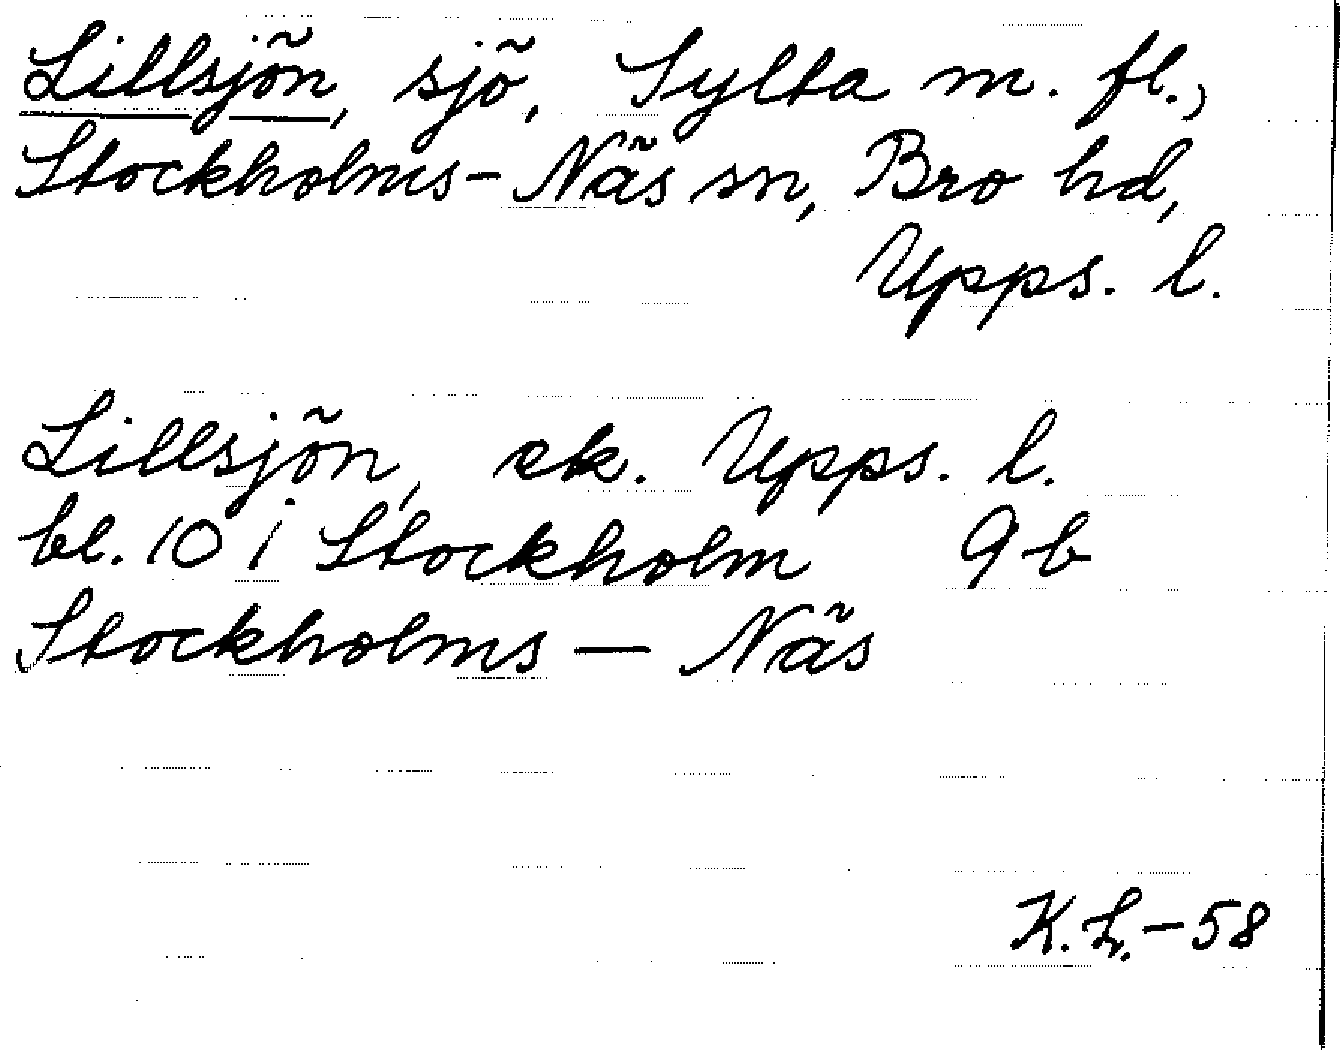 Lillsjön, sjö, Sylta m. fl.,
Stockholms-Näs sn, Bro hd,
Upps. l.
Lillsjön, ek. Upps. l.
bl. 10 i Stockholm 9b
Stockholms — Näs
K.L.-58